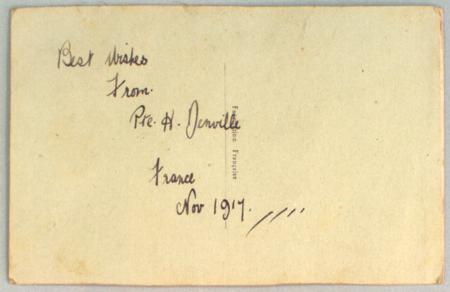 Best Wishes
From.
Pte. H. Denville
France
Nov 1917.
Fabrication Française